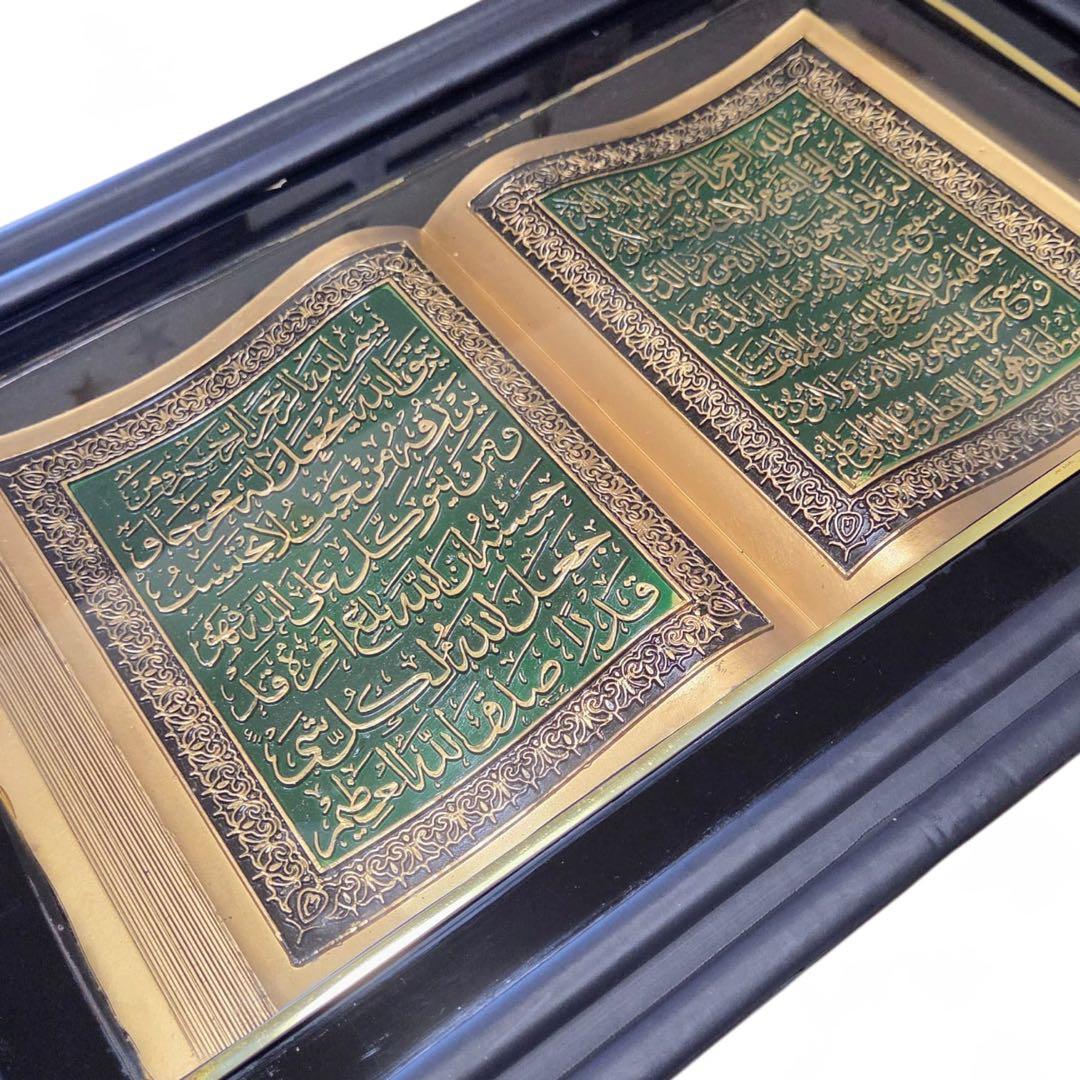 بسم الله الرحمن الرحيم الله لا اله الا
هو الحي القيوم لا تأخذه سنة ولا نوم له
ما في السموات وما في الارض من ذا الذي
يشفع عنده الا باذنه يعلم ما بين ايديهم وما
خلفهم ولا يحيطون بشيء من علمه الا بما شاء
وسع كرسيه السموات والارض ولا يؤده
حفظهما وهو العلي العظيم صدق الله العظيم
بسم الله الرحمن الرحيم ومن
يتق الله يجعل له مخرجا و
يرزقه من حيث لا يحتسب
ومن يتوكل على الله فهو
حسبه ان الله بالغ امره قد
جعل الله لكل شئ
قدرا صدق الله العظيم